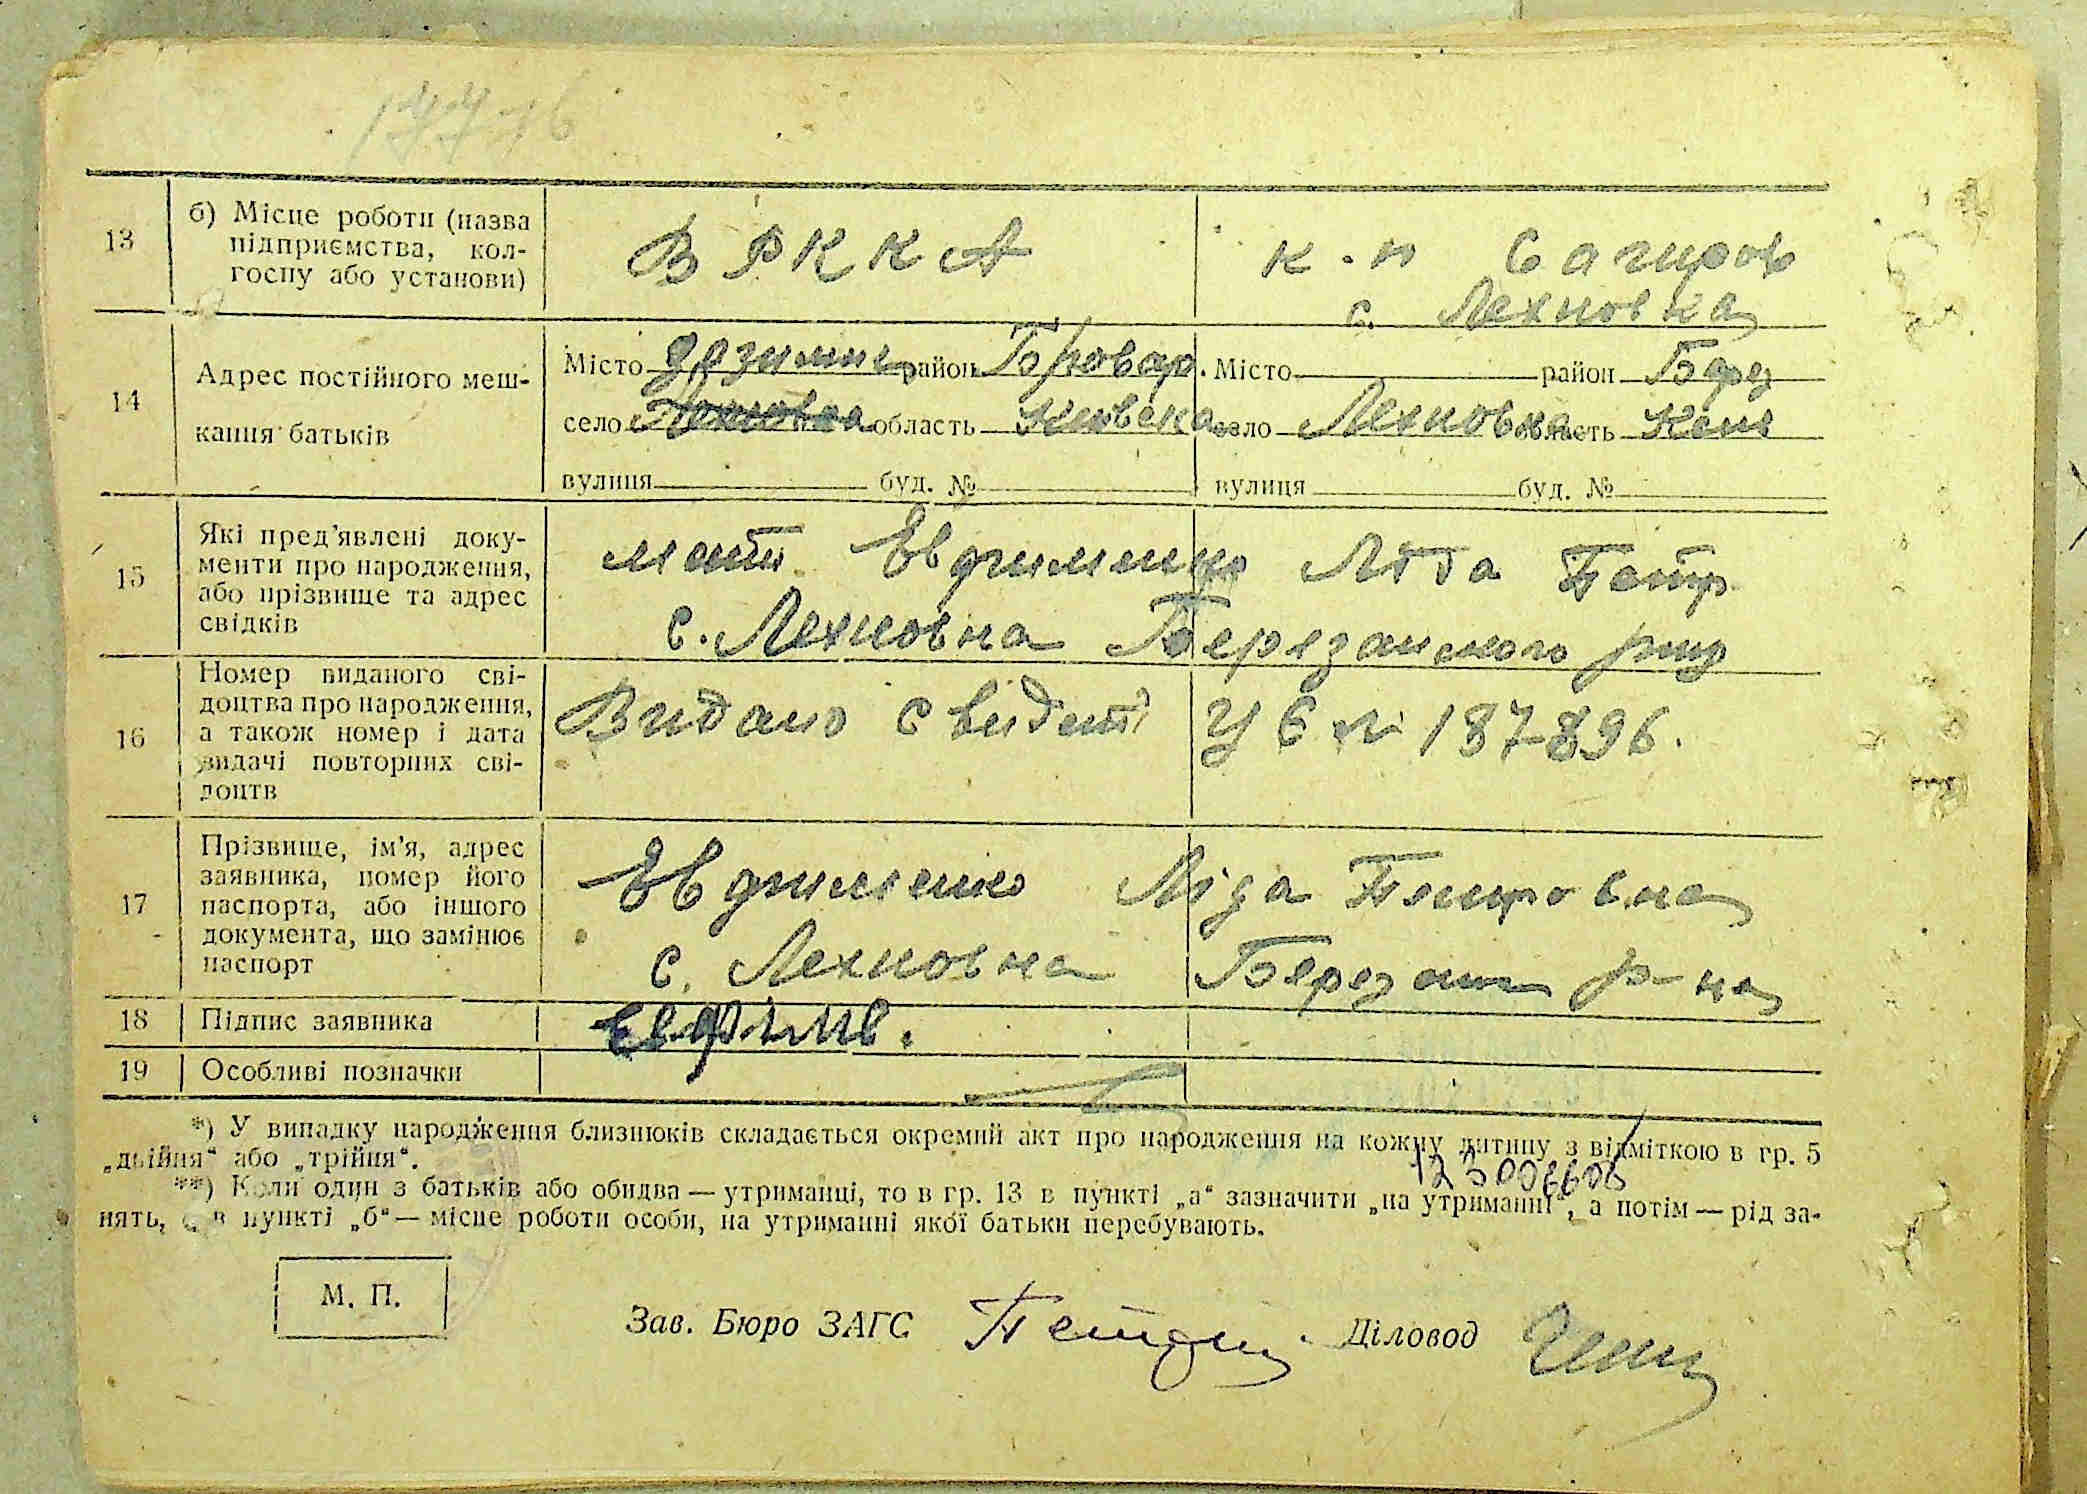 13
б) Місце роботи (назва
підприємства, кол-
госпу або установи)
В РККА
к-п
с. Лехновка
14
Адрес постійного меш-
кання батьків
Місто район Бровар.
село Лехновка область Київська
вулиця буд. №
Місто район Берез
село Лехновка область Киев
вулиця буд. №
15
Які пред'явлені доку-
менти про народження,
або прізвище та адрес
свідків
мати Евдименко Ліда Петр
с. Лехновка Березанского
16
Номер виданого сві-
доцтва про народження,
а також номер і дата
видачі повторних сві-
доцтв
Видано свидет УБ № 187896.
17
Прізвище, ім'я, адрес
заявника, номер його
паспорта, або іншого
документа, що замінює
паспорт
Евдименко Ліда Петровна
с. Лехновка Березан р-на
18
Підпис заявника
19
Особливі позначки
*) У випадку народження близнюків складається окремий акт про народження на кожну дитину з відміткою в гр. 5
„двійня“ або „трійня“.
**) Коли один з батьків або обидва — утриманці, то в гр. 13 в пункті „а“ зазначити „на утриманні“, а потім — рід за-
нять, а в пункті „б“ — місце роботи особи, на утриманні якої батьки перебувають.
М. П.
Зав. Бюро ЗАГС
Діловод